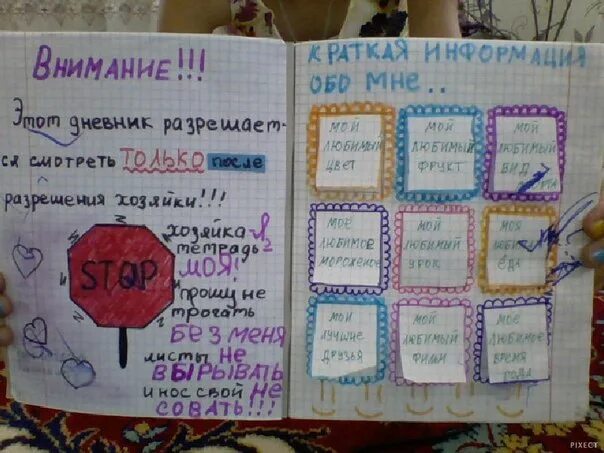 Внимание!!!
Этот дневник разрешает-
ся смотреть ТОЛЬКО после
разрешения хозяйки!!!
хозяйка-Я
тетрадь-
МОЯ!
прошу не
трогать
БЕЗ МЕНЯ
листы НЕ
ВЫРЫВАТЬ
и нос свой НЕ
СОВАТЬ!!!
STOP
КРАТКАЯ ИНФОРМАЦИЯ
ОБО МНЕ..
МОЙ
ЛЮБИМЫЙ
ЦВЕТ
МОЙ
ЛЮБИМЫЙ
ФРУКТ
МОЙ
ЛЮБИМЫЙ
ВИД
МОЁ
ЛЮБИМОЕ
МОРОЖЕНОЕ
МОЙ
ЛЮБИМЫЙ
УРОК
МОЯ
ЕДА
МОИ
ЛУЧШИЕ
ДРУЗЬЯ
МОЙ
ЛЮБИМЫЙ
ФИЛЬМ
МОЁ
ЛЮБИМОЕ
ВРЕМЯ
ГОДА
PIXECT